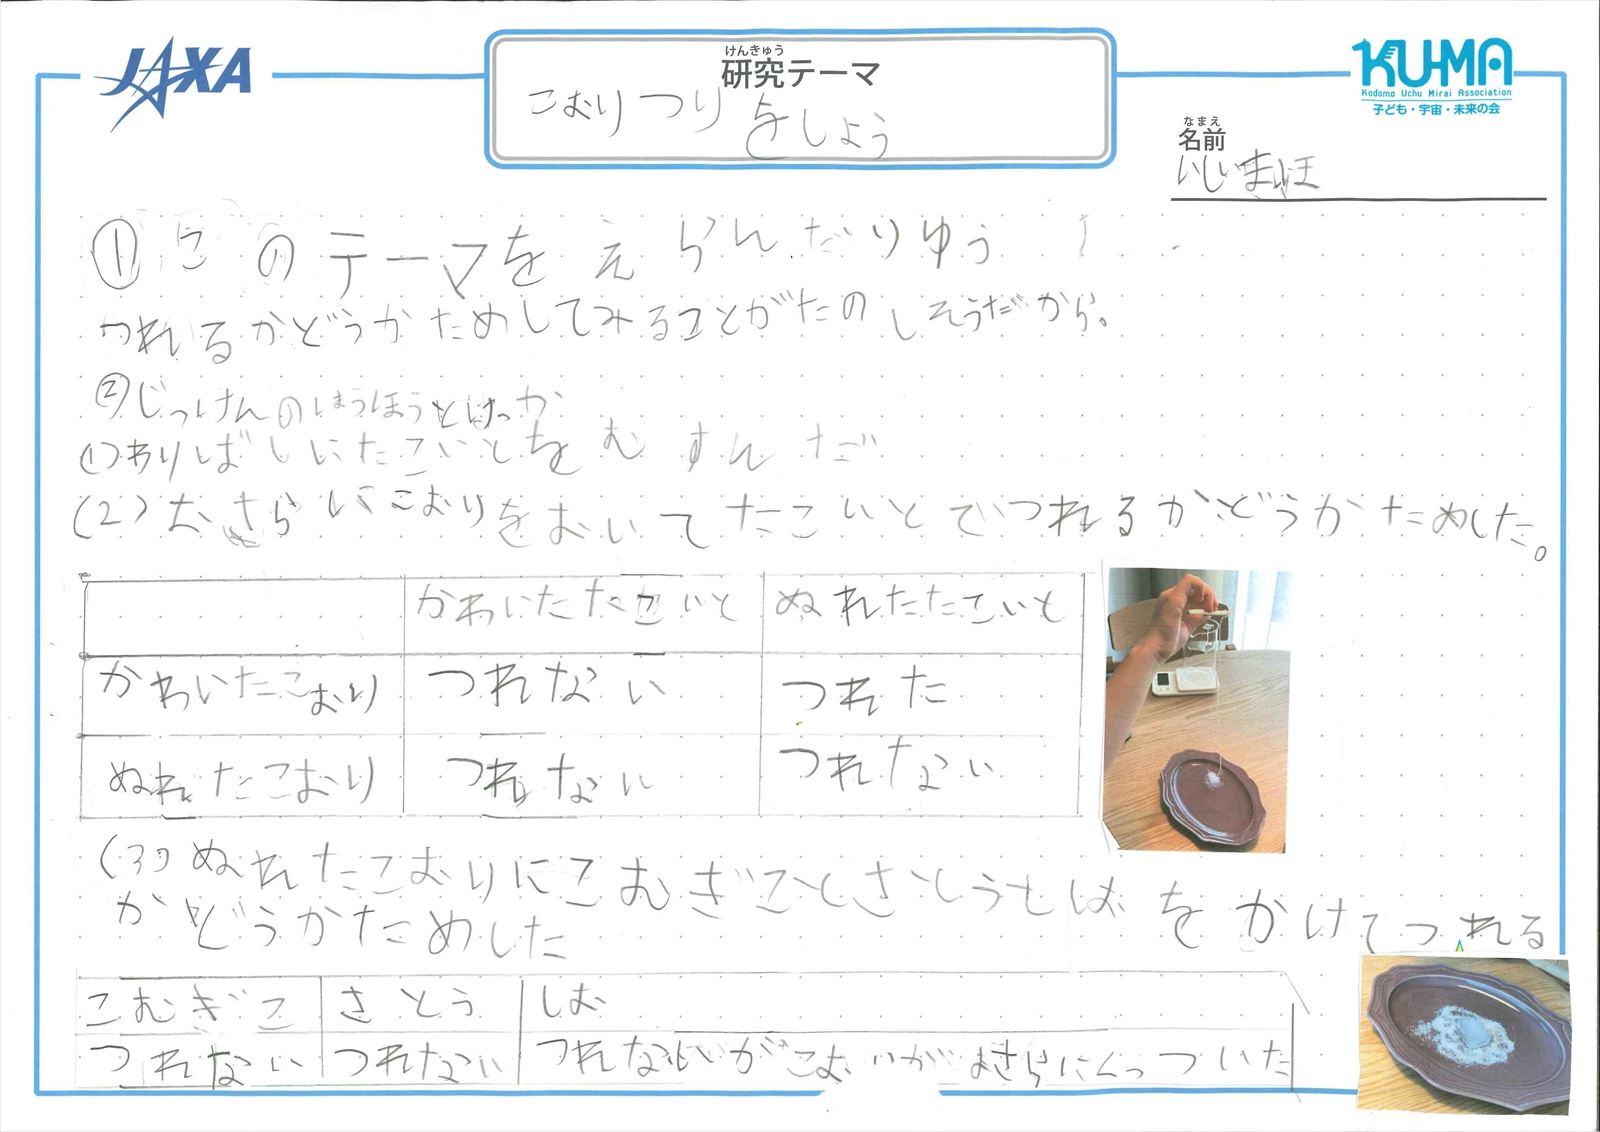 JAXA
けんきゅう
研究テーマ
こおりつりをしよう
KU-MA
Kodomo Uchu Mirai Association
子ども・宇宙・未来の会
なまえ
名前
①このテーマをえらんだりゆう
つれるかどうかためしてみることがたのしそうだから。
②じっけんのほうほうとけっか
(1)わりばしにたこいとをむすんだ
(2)おさらにこおりをおいてたこいとでつれるかどうかためした。
かわいたたこいと ぬれたたこいと
かわいたこおり つれない つれた
ぬれたこおり つれない つれない
(3)ぬれたこおりにこむぎことさとうと
をかけてつれる
かどうかためした
こむぎこ さとう しお
つれない つれない つれないが こおりが おさらにくっついた